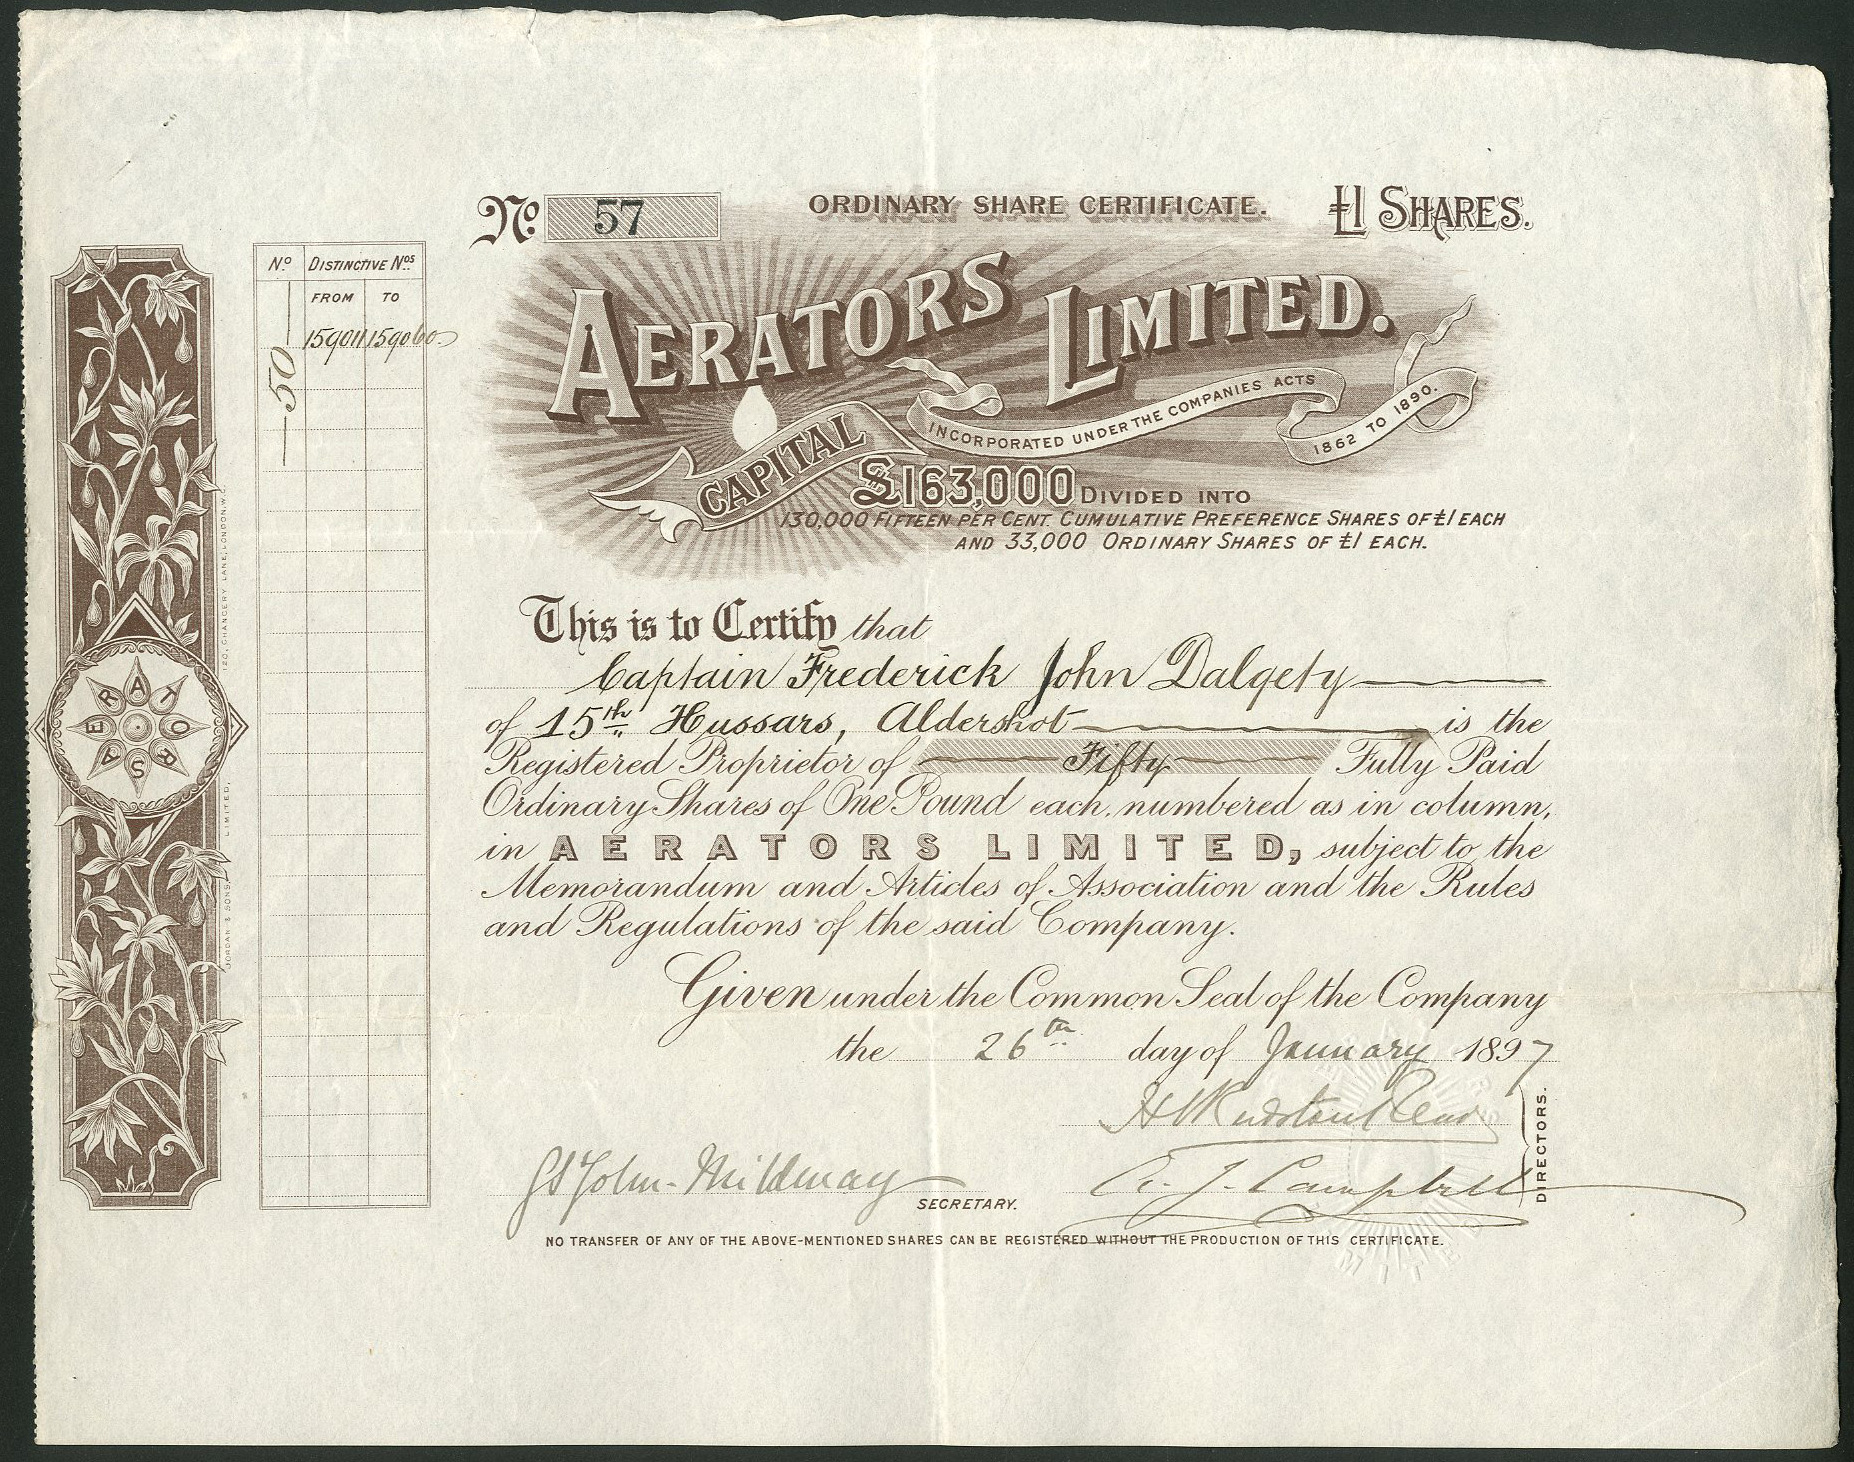 No. 57
ORDINARY SHARE CERTIFICATE.
£1 SHARES.
AERATORS LIMITED.
INCORPORATED UNDER THE COMPANIES ACTS
1862 TO 1890.
CAPITAL
£163,000 DIVIDED INTO
130,000 FIFTEEN PER CENT. CUMULATIVE PREFERENCE SHARES OF £1 EACH
AND 33,000 ORDINARY SHARES OF £1 EACH.
No. DISTINCTIVE Nos
FROM TO
50 159011 159060
AERATORS
JORDAN & SONS, LIMITED, 120, CHANCERY LANE, LONDON, W.C.
This is to Certify that
Captain Frederick John Dalgety
of 15th Hussars, Aldershot is the
Registered Proprietor of Fifty Fully Paid
Ordinary Shares of One Pound each, numbered as in column,
in AERATORS LIMITED, subject to the
Memorandum and Articles of Association and the Rules
and Regulations of the said Company.
Given under the Common Seal of the Company
the 26th day of January 1897
DIRECTORS.
St John-Mildmay
SECRETARY.
J. Campbell
NO TRANSFER OF ANY OF THE ABOVE-MENTIONED SHARES CAN BE REGISTERED WITHOUT THE PRODUCTION OF THIS CERTIFICATE.